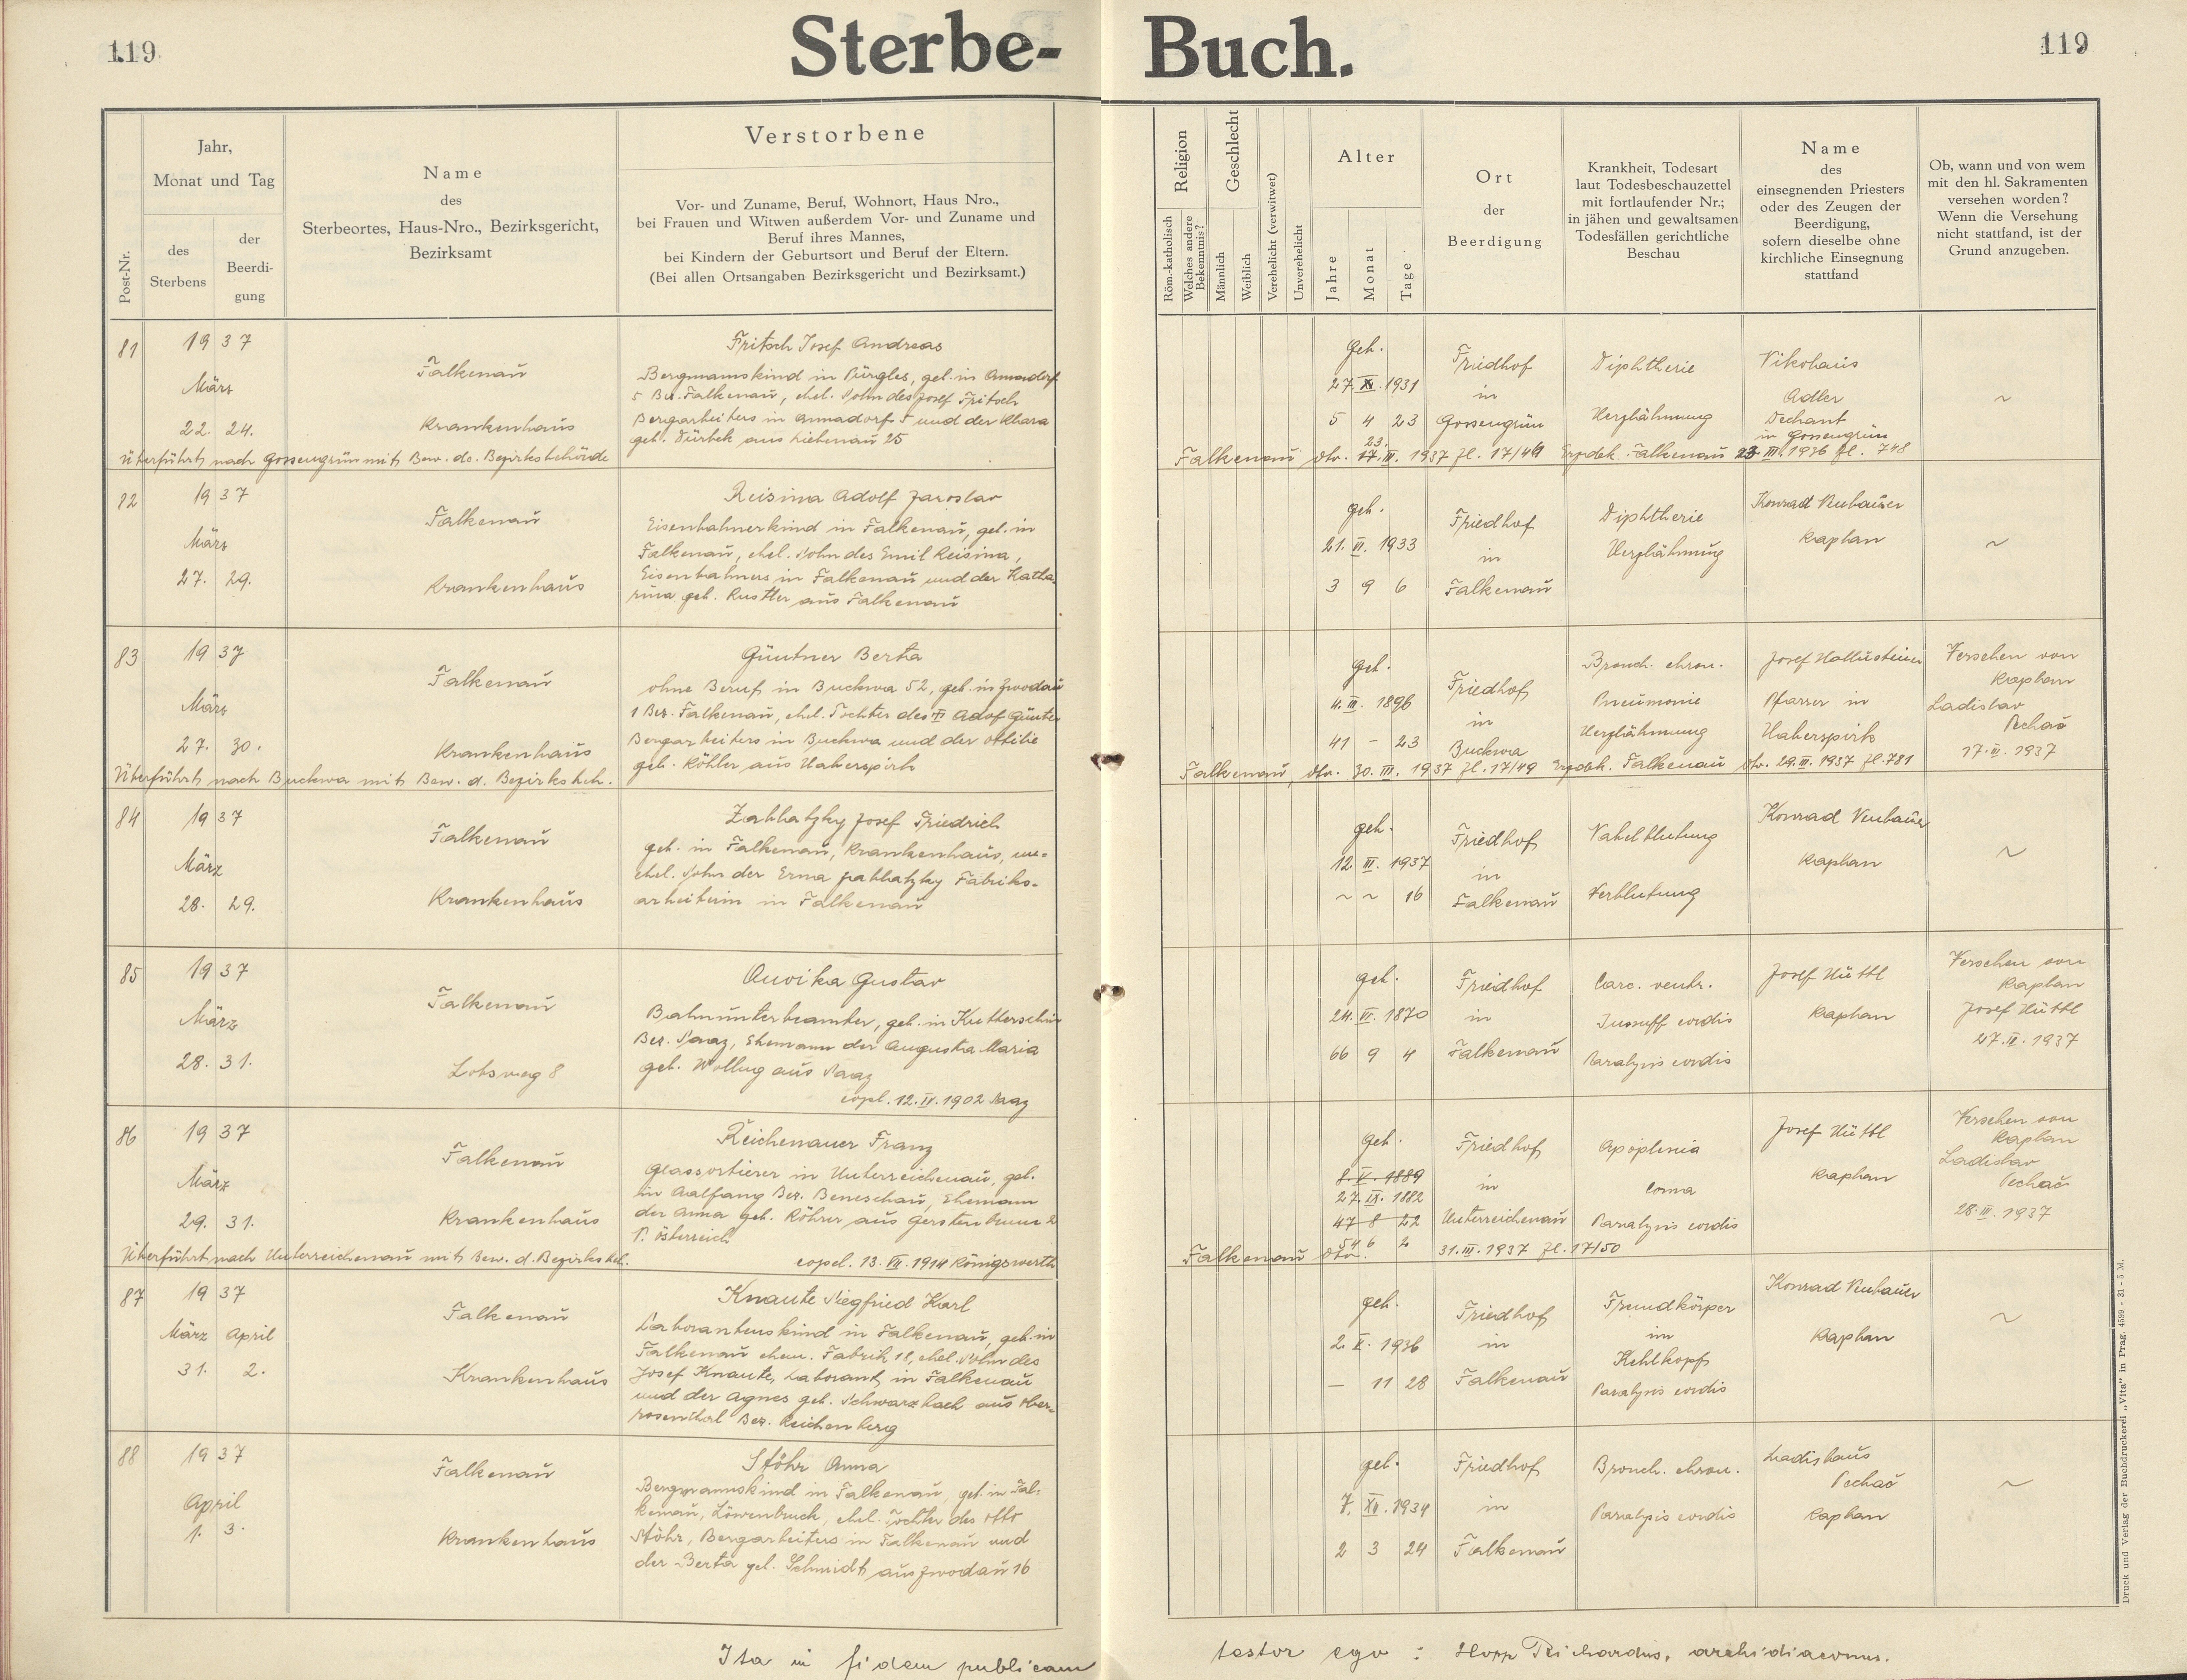 119
Sterbe- Buch.
119
Post-Nr.
Jahr,
Monat und Tag
des
Sterbens
der
Beerdi-
gung
Name
des
Sterbeortes, Haus-Nro., Bezirksgericht,
Bezirksamt
Verstorbene
Vor- und Zuname, Beruf, Wohnort, Haus Nro.,
bei Frauen und Witwen außerdem Vor- und Zuname und
Beruf ihres Mannes,
bei Kindern der Geburtsort und Beruf der Eltern.
(Bei allen Ortsangaben Bezirksgericht und Bezirksamt.)
Religion
Röm.-katholisch
Welches andere
Bekenntnis?
Geschlecht
Männlich
Weiblich
Verehelicht (verwitwet)
Unverehelicht
Alter
Jahre
Monat
Tage
Ort
der
Beerdigung
Krankheit, Todesart
laut Todesbeschauzettel
mit fortlaufender Nr.;
in jähen und gewaltsamen
Todesfällen gerichtliche
Beschau
Name
des
einsegnenden Priesters
oder des Zeugen der
Beerdigung,
sofern dieselbe ohne
kirchliche Einsegnung
stattfand
Ob, wann und von wem
mit den hl. Sakramenten
versehen worden?
Wenn die Versehung
nicht stattfand, ist der
Grund anzugeben.
81
1937
März
22. 24.
Falkenau
Krankenhaus
Fritsch Josef Andreas
Bergmannskind in Pürgles, geb. in Annadorf
5 Bez. Falkenau, ehel. Sohn des Josef Fritsch
Bergarbeiters in Annadorf 5 und der Klara
geb. Dürbek aus Liebenau 25
Überführt nach Gossengrün mit Bew. de. Bezirksbehörde
geb.
27. XI. 1931
5 4 23
Friedhof
in
Gossengrün
Diphtherie
Herzlähmung
Nikolaus
Adler
Dechant
in Gossengrün
~
Falkenau dto. 23. III. 1937 Zl. 17/49 Erzdek. Falkenau 23. III. 1936 Zl. 748
82
1937
März
27. 29.
Falkenau
Krankenhaus
Reisina Adolf Jaroslav
Eisenbahnerkind in Falkenau, geb. in
Falkenau, ehel. Sohn des Emil Reisina,
Eisenbahners in Falkenau und der Katha-
rina geb. Rustler aus Falkenau
geb.
21. VI. 1933
3 9 6
Friedhof
in
Falkenau
Diphtherie
Herzlähmung
Konrad Neubauer
Kaplan
~
83
1937
März
27. 30.
Falkenau
Krankenhaus
Güntner Berta
ohne Beruf in Buckwa 52, geb. in Zwodau
1 Bez. Falkenau, ehel. Tochter des † Adof Güntner
Bergarbeiters in Buckwa und der Ottilie
geb. Köhler aus Haberspirk
Überführt nach Buckwa mit Bew. d. Bezirksbeh.
geb.
4. III. 1896
41 – 23
Friedhof
in
Buckwa
Bronch. chron.
Pneumonie
Herzlähmung
Josef Hallusteiner
Pfarrer in
Haberspirk
Versehen von
Kaplan
Ladislav
Pechač
17. III. 1937
Falkenau, dto. 30. III. 1937 Zl. 17/49 Erzdek. Falkenau dto. 29. III. 1937 Zl. 781
84
1937
März
28. 29.
Falkenau
Krankenhaus
Zahlatzky Josef Friedrich
geb. in Falkenau, Krankenhaus, un-
ehel. Sohn der Erna Zahlatzky Fabriks-
arbeiterin in Falkenau
geb.
12. III. 1937
~ ~ 16
Friedhof
in
Falkenau
Nabelblutung
Verblutung
Konrad Neubauer
Kaplan
~
85
1937
März
28. 31.
Falkenau
Lobsweg 8
Auvika Gustav
Bahnunterbeamter, geb. in Kutterschin
Bez. Saaz, Ehemann der Augusta Maria
geb. Wollng aus Saaz
copul. 12. IV. 1902 Saaz
geb.
24. VI. 1870
66 9 4
Friedhof
in
Falkenau
Carc. ventr.
Insuff cordis
Paralysis cordis
Josef Hüttl
Kaplan
Versehen von
Kaplan
Josef Hüttl
27. III. 1937
86
1937
März
29. 31.
Falkenau
Krankenhaus
Reichenauer Franz
Glassortierer in Unterreichenau, geb.
in Aalfang Bez. Beneschau, Ehemann
der Anna geb. Röhrer aus Gerstenbrunn 2
N. Österreich
copul. 13. VII. 1914 Königswerth
Überführt nach Unterreichenau mit Bew. d. Bezirksbeh.
geb.
8. V. 1889
27. IX. 1882
47 8 22
54 6 2
Friedhof
in
Unterreichenau
Apoplexia
Coma
Paralysis cordis
Josef Hüttl
Kaplan
Versehen von
Kaplan
Ladislav
Pechač
28. III. 1937
Falkenau dto. 31. III. 1937 Zl. 17/50
87
1937
März April
31. 2.
Falkenau
Krankenhaus
Knaute Siegfried Karl
Laborantenskind in Falkenau, geb. in
Falkenau chem. Fabrik 18, ehel. Sohn des
Josef Knaute, Laborant in Falkenau
und der Agnes geb. Schwarzbach aus Ober-
rosenthal Bez. Reichenberg
geb.
2. V. 1936
– 11 28
Friedhof
in
Falkenau
Fremdkörper
im
Kehlkopf
Paralysis cordis
Konrad Neubauer
Kaplan
~
88
1937
April
1. 3.
Falkenau
Krankenhaus
Stöhr Anna
Bergmannskind in Falkenau, geb. in Fal-
kenau, Löwenbruch, ehel. Tochter des Otto
Stöhr, Bergarbeiters in Falkenau und
der Berta geb. Schmidt aus Zwodau 16
geb.
7. XII. 1934
2 3 24
Friedhof
in
Falkenau
Bronch. chron.
Paralysis cordis
Ladislaus
Pechač
Kaplan
~
Ita in fidem publicam testor ego : Hopp Richardus, archidiaconus.
Druck und Verlag der Buchdruckerei „Vita" in Prag. 4599 - 31 - 5 M.